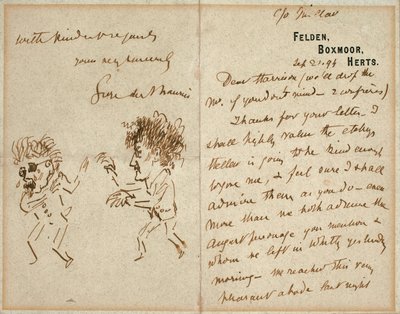 c/o Sinclair
FELDEN,
BOXMOOR,
HERTS.
Sep 21. 94
Dear Harrison (we'll drop the
Mr. if you don't mind — 2 confrères)
Thanks for your letter — I
shall highly value the etchgs
Helleu is going to be kind enough
to give me, & feel sure I shall
admire them as you do — even
more than we both admire the
august personage you mention &
whom we left in Whitby yesterday
morning — we reached this very
pleasant abode last night
with kindest regards
yours very sincerely
du Maurier